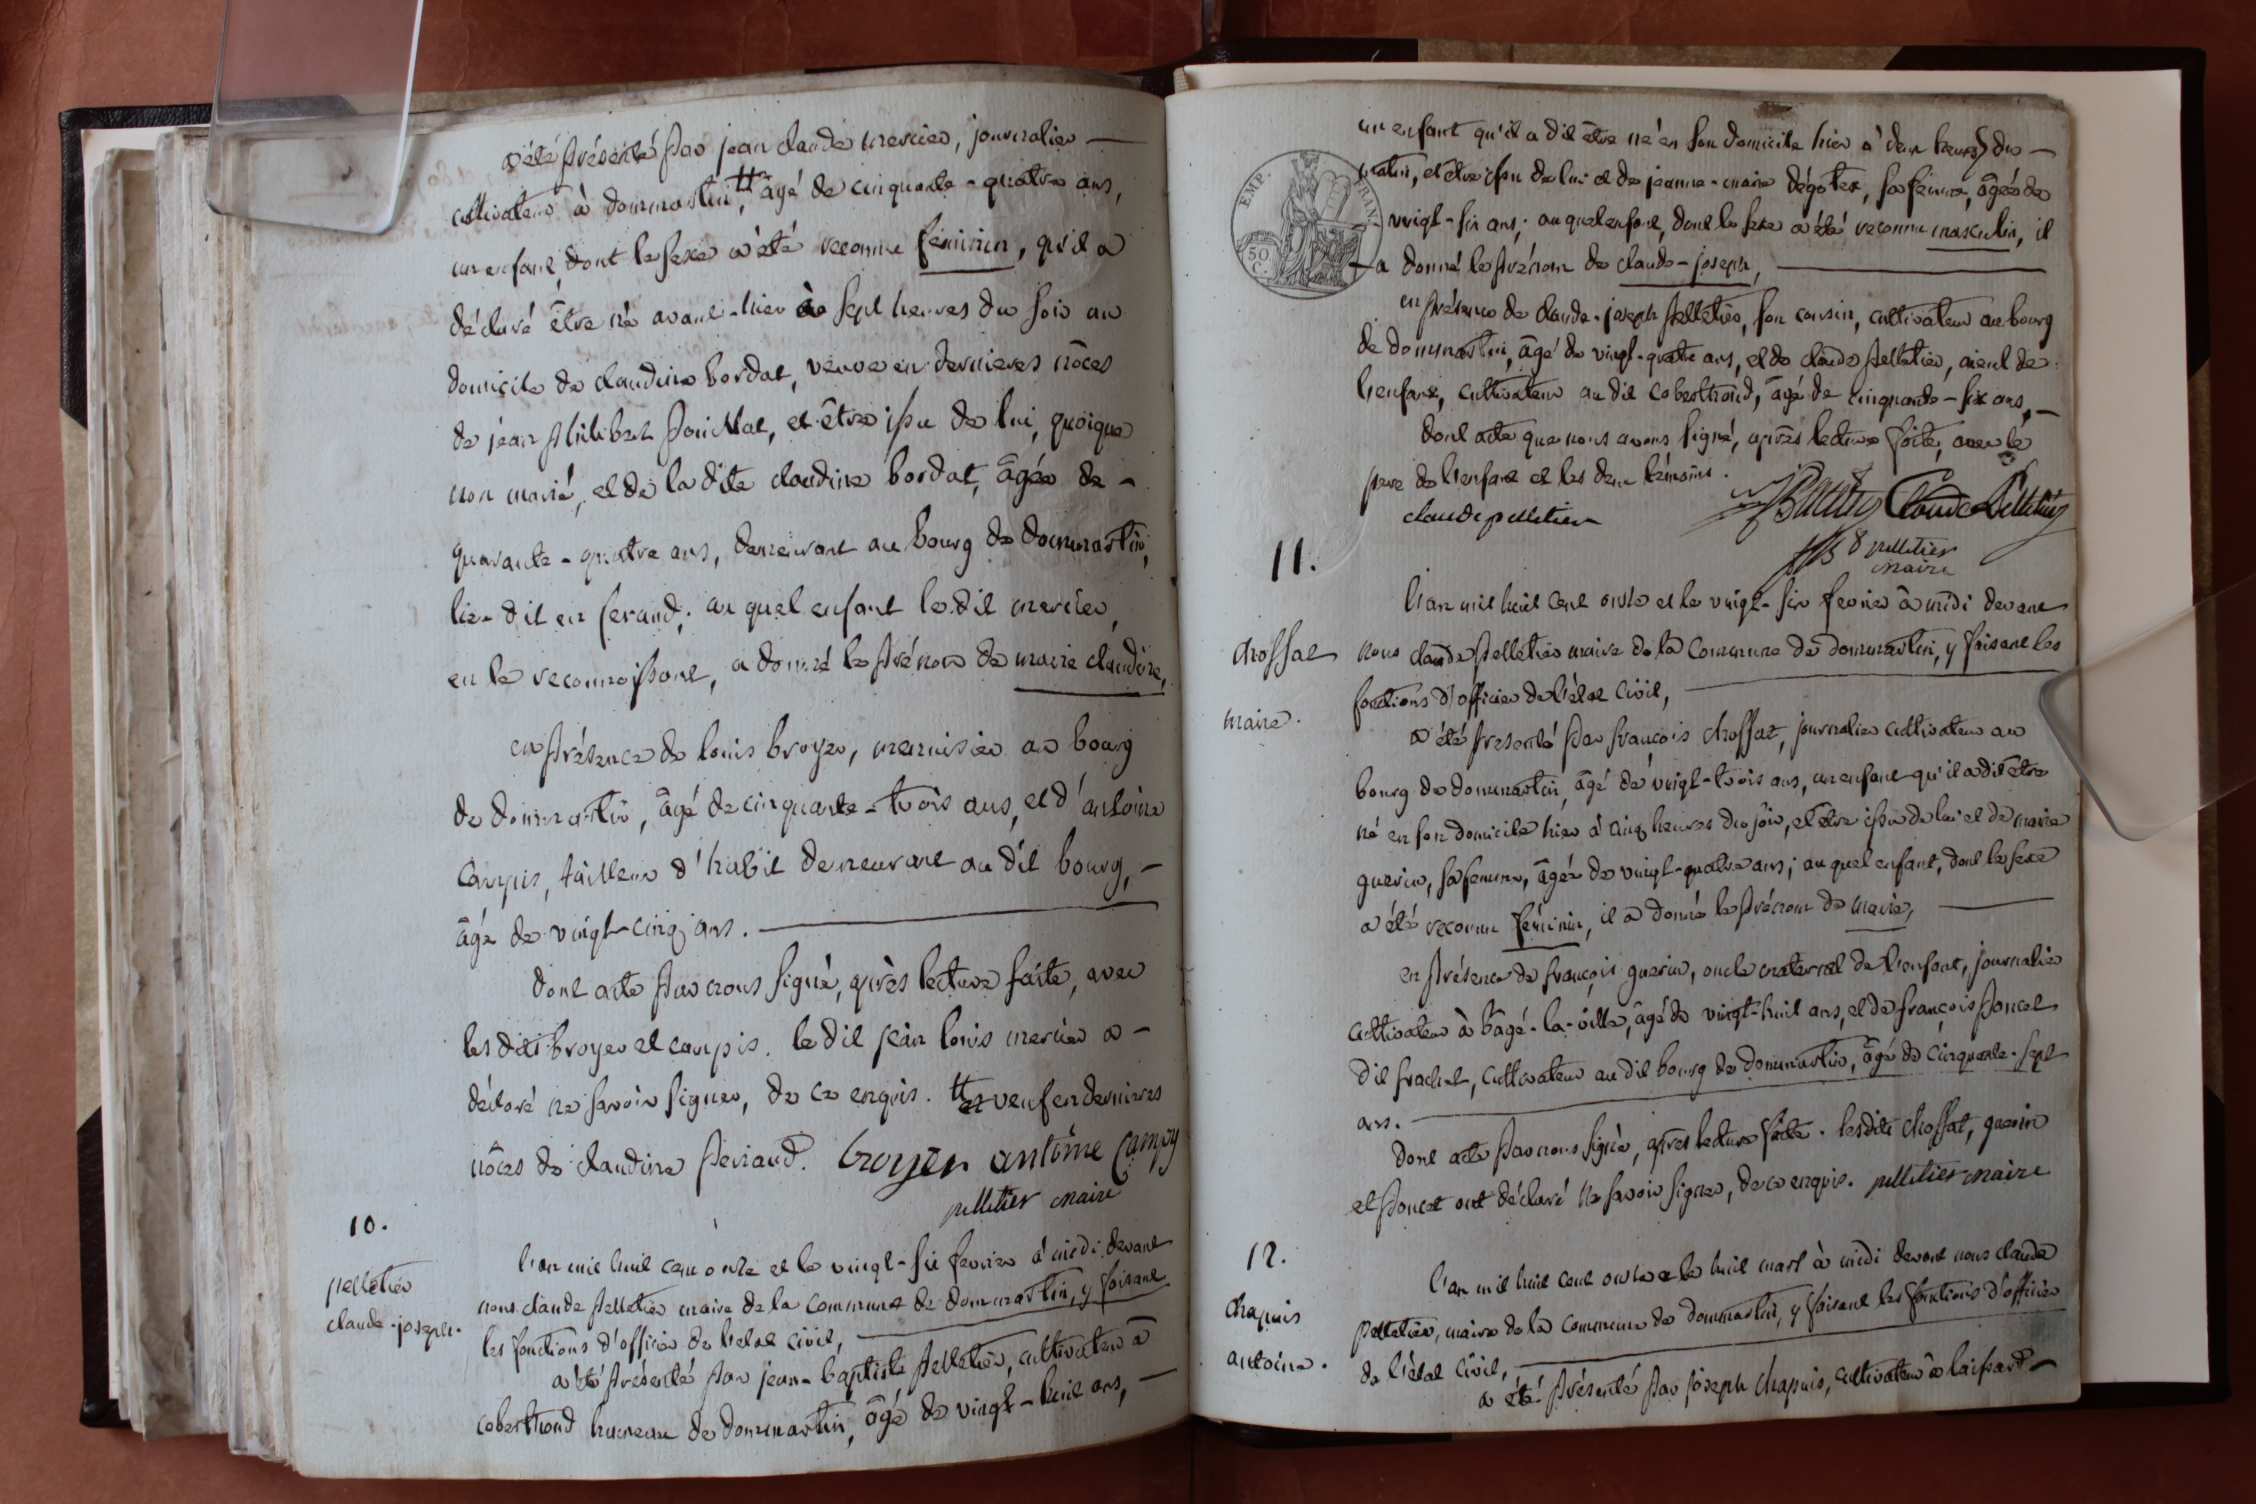 a été présenté par jean claude mercier, journalier —
cultivateur à dommartin, tt âgé de cinquante-quatre ans,
un enfant, dont le sexe a été reconnu féminin, qu'il a
déclaré être né avant-hier à sept heures du soir au
domicile de claudine bordat, veuve en dernieres nôces
de jean philibert pouillat, et être issu de lui, quoique
non marié, et de la dite claudine bordat, âgée de -
quarante-quatre ans, demeurant au bourg de dommartin,
lieu-dit en ferand; au quel enfant le dit mercier,
en le reconnoissant, a donné le prénom de marie claudine,
en présence de louis broyer, menuisier au bourg
de dommartin, âgé de cinquante-trois ans, et d'antoine
campis, tailleur d'habit demeurant au dit bourg, -
âgé de vingt-cinq ans. —
dont acte par nous signé, après lecture faite, avec
les dits broyer et campis. le dit jean louis mercier a -
déclaré ne savoir signer, de ce enquis. tt veuf en dernieres
nôces de claudine periaud. broyer antoine campy
pelletier maire
10.
pelletier
claude-joseph.
l'an mil huit cent onze et le vingt-six fevrier à midi devant
nous claude pelletier maire de la commune de dommartin, y faisant
les fonctions d'officier de l'etat civil, —
a été présenté par jean-baptiste pelletier, cultivateur à
coberthoud hameau de dommartin, âgé de vingt-huit ans, —
EMP. FRAN.
50
C.
un enfant qu'il a dit être né en son domicile hier à deux heures du —
matin, et être issu de lui et de jeanne-marie dégotex, sa femme, âgée de
vingt-six ans; au quel enfant, dont le sexe a été reconnu masculin, il
a donné le prénom de claude-joseph, —
en présence de claude-joseph pelletier, son cousin, cultivateur au bourg
de dommartin, âgé de vingt-quatre ans, et de claude pelletier, aieul de
l'enfant, cultivateur au dit coberthoud, âgé de cinquante-six ans, —
dont acte que nous avons signé, après lecture faite, avec le
pere de l'enfant et les deux témoins.
claude pelletier Claude Pelletier
pelletier
maire
11.
chossat
marie.
l'an mil huit cent onze et le vingt-six fevrier à midi devant
nous claude pelletier maire de la commune de dommartin, y faisant les
fonctions d'officier de l'état civil, —
a été presenté par francois chossat, journalier cultivateur au
bourg de dommartin, âgé de vingt-trois ans, un enfant qu'il a dit être
né en son domicile hier à cinq heures du soir, et être issu de lui et de marie
guerin, sa femme, âgée de vingt-quatre ans; au quel enfant, dont le sexe
a été reconnu féminin, il a donné le prénom de marie, —
en présence de françois guerin, oncle maternel de l'enfant, journalier
cultivateur à bâgé-la-ville, âgé de vingt-huit ans, et de françois poncet
dit frachet, cultivateur au dit bourg de dommartin, âgé de cinquante-sept
ans. —
dont acte par nous signé, après lecture faite. lesdits chossat, guerin
et poncet ont déclaré ne savoir signer, de ce enquis. pelletier maire
12.
chapuis
antoine.
l'an mil huit cent onze et le huit mars à midi devant nous claude
pelletier, maire de la commune de dommartin, y faisant les fonctions d'officier
de l'état civil, —
a été présenté par joseph chapuis, cultivateur à laissard —